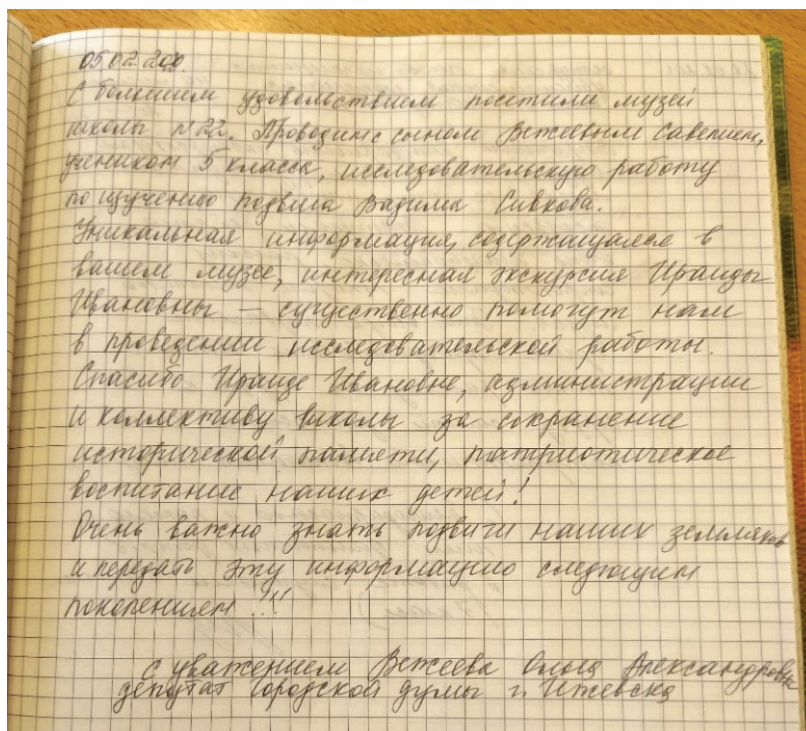 05.02.2020.
С большем удовольствием посетили музей
школы №22. Проводим с сыном Савелием,
учеником 5 класса, исследовательскую работу
по изучению подвига Вадима Сивкова.
Уникальная информация, содержащаяся в
вашем музее, интересная экскурсия Ираиды
Ивановны – существенно помогут нам
в проведении исследовательской работы.
Спасибо Ираиде Ивановне, администрации
и коллективу школы за сохранение
исторической памяти, патриотическое
воспитание наших детей!
Очень важно знать подвиги наших земляков
и передать эту информацию следующим
поколениям!!!
С уважением Ольга Александровна
депутат Городской думы г. Ижевска